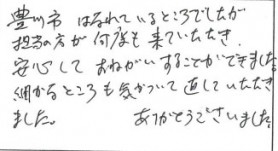 豊川市 はなれているところでしたが
担当の方が何度も来ていただき、
安心しておねがいすることができました
細かなところも気がついて直していただき
ました。 ありがとうございました。